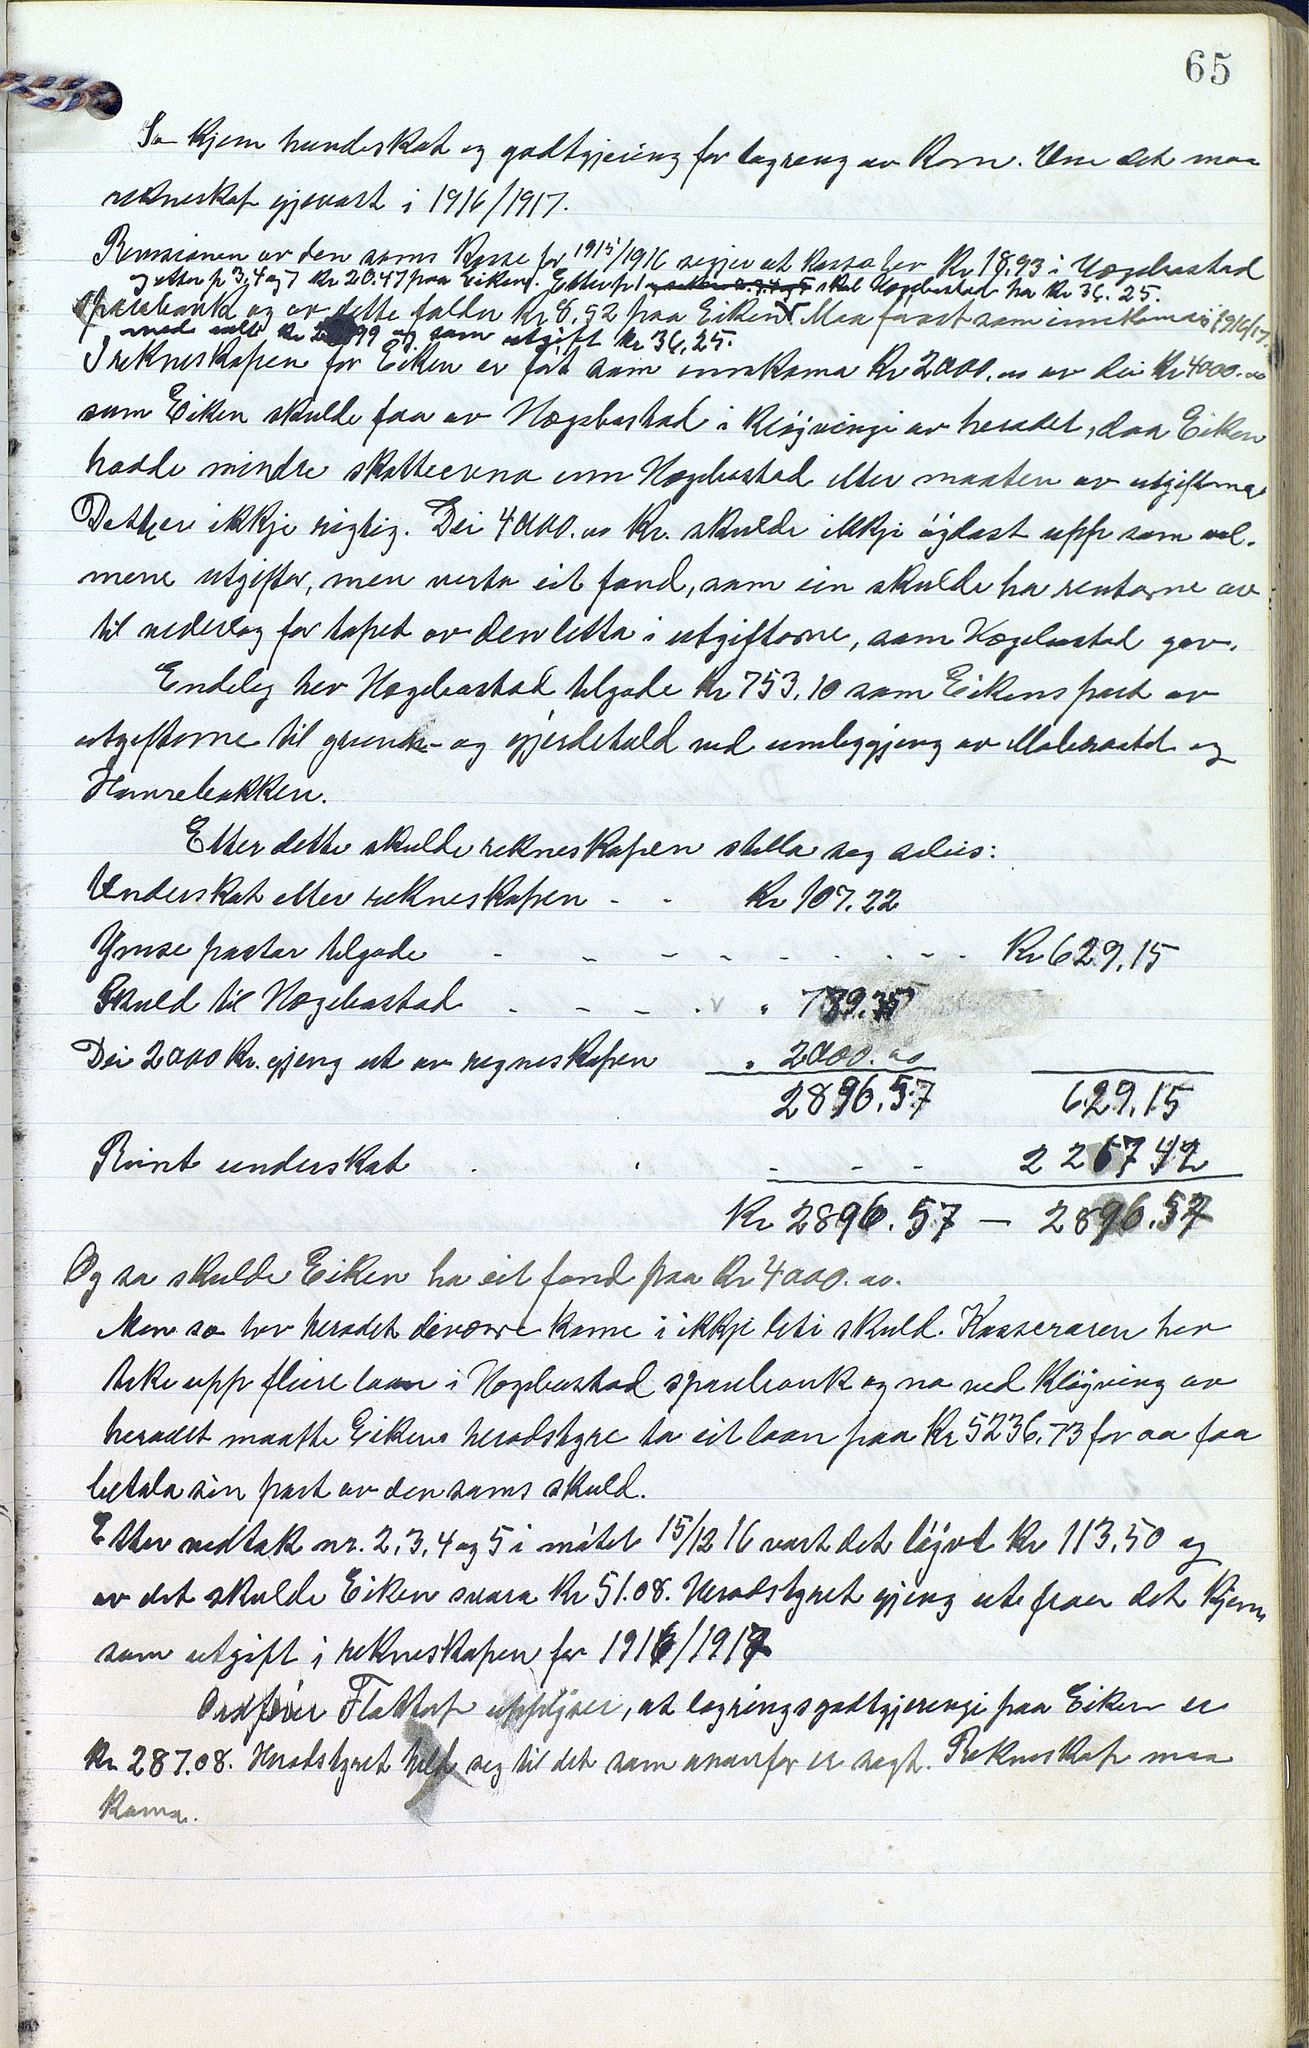 65
So kjem hundeskat og godtgjering for lagring av korn. Um det maa
rekneskap gjevast i 1916/1917.
Revisionen av den sams kasse for 1915/1916 segjer at kassa hev Kr 18.93 i Hægebostad
og etter p 3, 4 og 7 Kr 20.47 paa Eiken. Etter p 1 skal Hægebostad ha Kr 36.25.
sparebank og av dette falder Kr 8,52 paa Eiken. Maa førast som innkoma i 1916/17
med Kr 99 og som utgift Kr 36,25.
I rekneskapen for Eiken er ført som innkoma Kr 2000.00 av dei Kr 4000.00
som Eiken skulde faa av Hægebostad i kløyvingi av heradet, daa Eiken
hadde mindre skatteevna enn Hægebostad etter maaten av utgiftorne.
Dette er ikkje rigtig. Dei 4000.00 Kr. skulde ikkje øydast upp som vel-
mene utgifter, men verta eit fond, som ein skulde ha rentorne av
til vederlag for tapet av den letta i utgiftorne, som Hægebostad gav.
Endeleg hev Hægebostad tilgode Kr 753,10 som Eikens part av
utgiftorne til grunn- og gjerdehald ved umlegging av og
Hamrebakken.
Etter dette skulde rekneskapen stella seg soleis:
Underskot etter rekneskapen - - Kr 107.22
Ymse postar tilgode - - - - - - - - Kr 629,15
Skuld til Hægebostad - - - - " 789.35
Dei 2000 Kr. gjeng ut av regneskapen " 2000.00
2896.57 629,15
Reint underskot - - - - - 2267 42
Kr 2896.57 — 2896.57
Og so skulde Eiken ha eit fond paa Kr 4000.00.
Men so hev heradet diverre kome i ikkje liti skuld. Kasseraren hev
teke upp fleire laan i Hægebostad sparebank og no ved kløyving av
heradet maatte Eikens heradstyre ta eit laan paa Kr 5236,73 for aa faa
betala sin part av den sams skuld.
Etter vedtak nr. 2, 3, 4 og 5 i møtet 15/12 16 vart det løyvt Kr 113,50 og
av det skulde Eiken svara Kr 51.08. Heradstyret gjeng ut ifraa det kjem
som utgift i rekneskapen for 1916/1917
Ordførar Flottorp upplyser, at lagringsgodtgjeringi paa Eiken er
Kr 287.08. Heradstyret held seg til det som ovanfor er sagt. Rekneskap maa
koma.